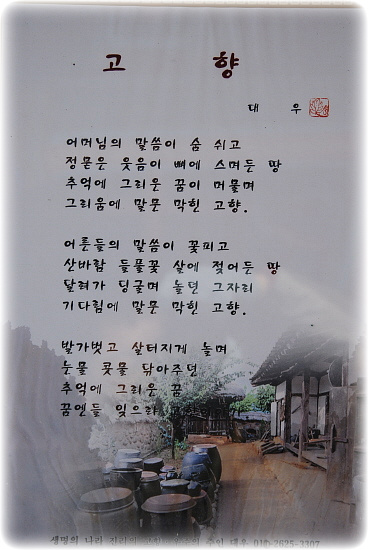 고 향
대 우
어머님의 말씀이 숨 쉬고
정몬은 웃음이 뼈에 스며든 땅
추억에 그리운 꿈이 머물며
그리움에 말문 막힌 고향.
어른들의 말씀이 꽃피고
산바람 들풀꽃 살에 젖어든 땅
달려가 딩굴며 놀던 그자리
기다림에 말문 막힌 고향.
발가벗고 살터지게 놀며
눈물 콧물 닦아주던
추억에 그리운 꿈
꿈엔들 잊으랴
생명의 나라 진리의
주인 대우